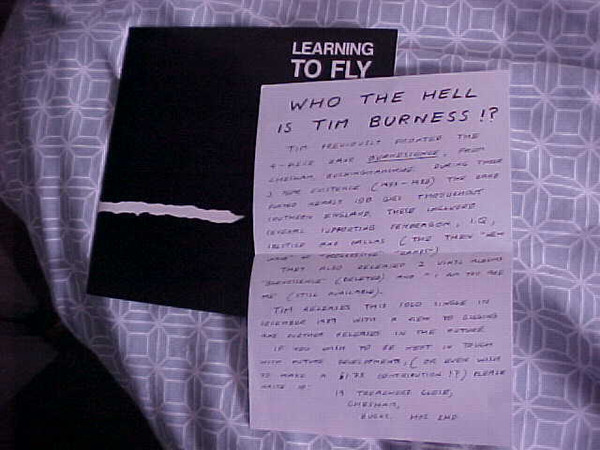 LEARNING
TO FLY
WHO THE HELL
IS TIM BURNESS !?
TIM PREVIOUSLY FRONTED THE
4-PIECE BAND BURNESSENCE, FROM
CHESHAM, BUCKINGHAMSHIRE. DURING THEIR
3 YEAR EXISTENCE (1983-1986) THE BAND
PLAYED NEARLY 100 GIGS THROUGHOUT
SOUTHERN ENGLAND. THESE INCLUDED
SEVERAL SUPPORTING PENDRAGON, I.Q.,
SOLSTICE AND PALLAS (THE THEN "NEW
WAVE" OF "PROGRESSIVE" BANDS)
THEY ALSO RELEASED 2 VINYL ALBUMS
"BURNESSENCE" (DELETED) AND "I AM YOU ARE
ME" (STILL AVAILABLE).
TIM RELEASES THIS SOLO SINGLE IN
DECEMBER 1987 WITH A VIEW TO GIGGING
AND FURTHER RELEASES IN THE FUTURE.
IF YOU WISH TO BE KEPT IN TOUCH
WITH FUTURE DEVELOPMENTS, (OR EVEN WISH
TO MAKE A CONTRIBUTION !?) PLEASE
WRITE TO:
CLOSE,
CHESHAM,
BUCKS.